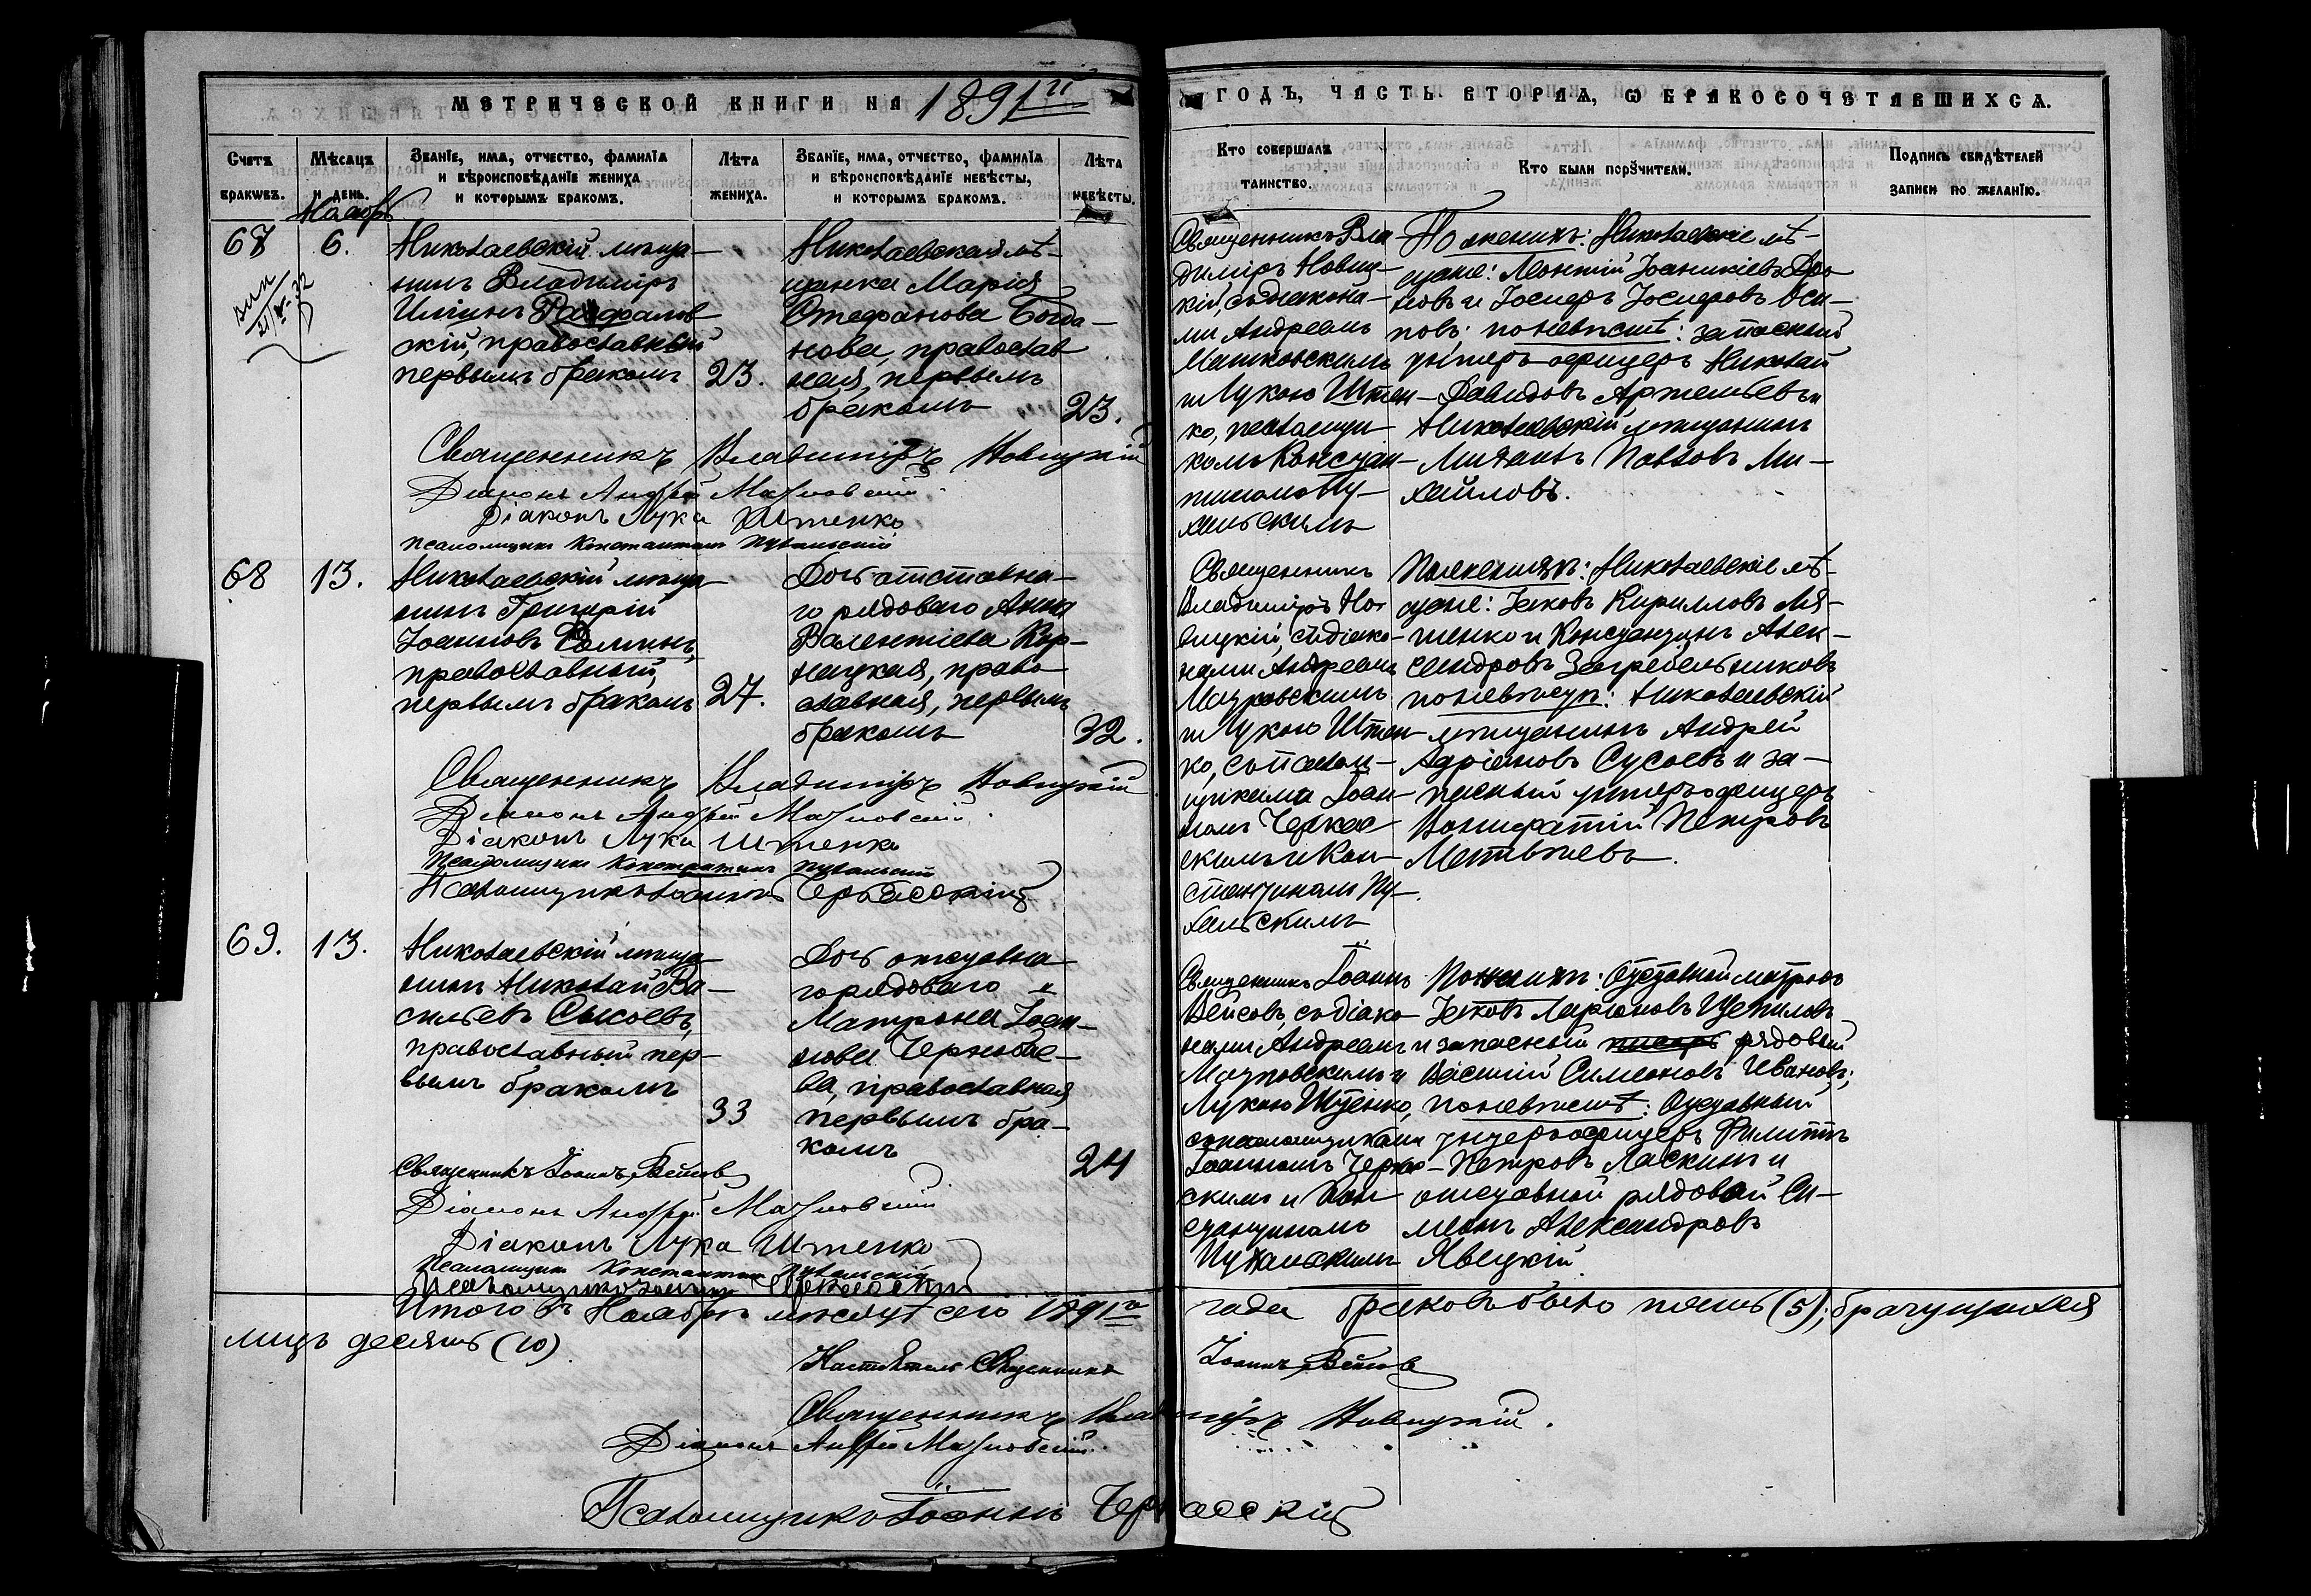 МЕТРИЧЕСКОЙ КНИГИ НА 1891й
ГОДЪ, ЧАСТЬ ВТОРАЯ, Ѡ БРАКОСОЧЕТАВШИХСЯ.
Счетъ браковъ.
Мѣсяцъ и день.
Званїе, имя, отчество, фамилїя и вѣроисповѣданїе жениха и которымъ бракомъ.
Лѣта жениха.
Званїе, имя, отчество, фамилїя и вѣроисповѣданїе невѣсты, и которымъ бракомъ.
Лѣта невѣсты.
Кто совершалъ таинство.
Кто были порꙋчители.
Подпись свидѣтелей записи по желанїю.
Ноябрь
67
6.
Николаевскій мѣща-
нинъ Владиміръ
Ильинъ
скій, православный
первымъ бракомъ
23.
Николаевская мѣ-
щанка Марія
Стефанова Богда-
нова, православ
ная, первымъ
бракомъ
23.
Священникъ Вла-
диміръ Новиц-
кій, съ діакона-
ми Андреемъ
и Лукою Штен-
ко, псаломщи-
комъ Констан-
тиномъ Пу-
хальскимъ
По женихѣ: Николаевскіе мѣ-
щане: Леонтій Іоаникіевъ
новъ и Іосифъ Іосифовъ Оси-
повъ; по невѣстѣ: запасный
унтеръ-офицеръ Николай
Давидовъ Артемьевъ и
Николаевскій мѣщанинъ
Михаилъ Павловъ Ми-
хайловъ.
Священникъ Владиміръ Новицкій
Діаконъ Андрей
Діаконъ Лука Штенко
Псаломщикъ Константинъ Пухальскій
68
13.
Николаевскій мѣща-
нинъ Григорій
Іоанновъ Фоминъ,
православный,
первымъ бракомъ
27.
Дочь отставна-
го рядоваго Анна
Валентіева Кор-
нецкая, право-
славная, первымъ
бракомъ
32.
Священникъ
Владиміръ Но-
вицкій, съ діако-
нами Андреемъ
и Лукою Штен-
ко, съ псалом-
щиками Іоан-
номъ Черкас-
скимъ и Кон-
стантиномъ Пу-
хальскимъ
По женихѣ: Николаевскіе мѣ-
щане: Іаковъ Кирилловъ Ля-
шенко и Константинъ Алек-
сандровъ Загребельниковъ
по невѣстѣ: Николаевскій
мѣщанинъ Андрей
Адріановъ Сусоевъ и за-
пасный унтеръ-офицеръ
Вонифатій Петровъ
Матвѣевъ.
Священникъ Владиміръ Новицкій
Діаконъ Андрей
Діаконъ Лука Штенко
Псаломщикъ Константинъ Пухальскій
Псаломщикъ Іоаннъ Черкасскій
69.
13.
Николаевскій мѣща-
нинъ Николай Ва-
сильевъ Сысоевъ,
православный пер-
вымъ бракомъ
33
Дочь отставна-
го рядоваго
Матрона Іоан-
нова Чернобае-
ва, православная
первымъ бра-
комъ
24
Священникъ Іоаннъ
Вейсовъ, съ діако-
нами Андреемъ
Лукою Штенко,
съ псаломщиками
Іоанномъ Черкас-
скимъ и Кон-
стантиномъ
Пухальскимъ
По женихѣ: Отставной матросъ
Іаковъ Ларіоновъ
и запасный писарь рядовый
Василій Симеоновъ Ивановъ;
по невѣстѣ: Отставный
унтеръ-офицеръ Филиппъ
Петровъ Ласкинъ и
отставной рядовой Си-
меонъ Александровъ
Явецкій
Священникъ Іоаннъ Вейсовъ
Діаконъ Андрей
Діаконъ Лука Штенко
Псаломщикъ Константинъ Пухальскій
Псаломщикъ Іоаннъ Черкасскій
Итого въ Ноябрѣ мѣсяцѣ сего 1891го года браковъ было пять (5); брачущихся
лицъ десять (10).
Настоятель Священникъ Іоаннъ Вейсовъ
Священникъ Владиміръ Новицкій.
Діаконъ Андрей
Псаломщикъ Іоаннъ Черкасскій